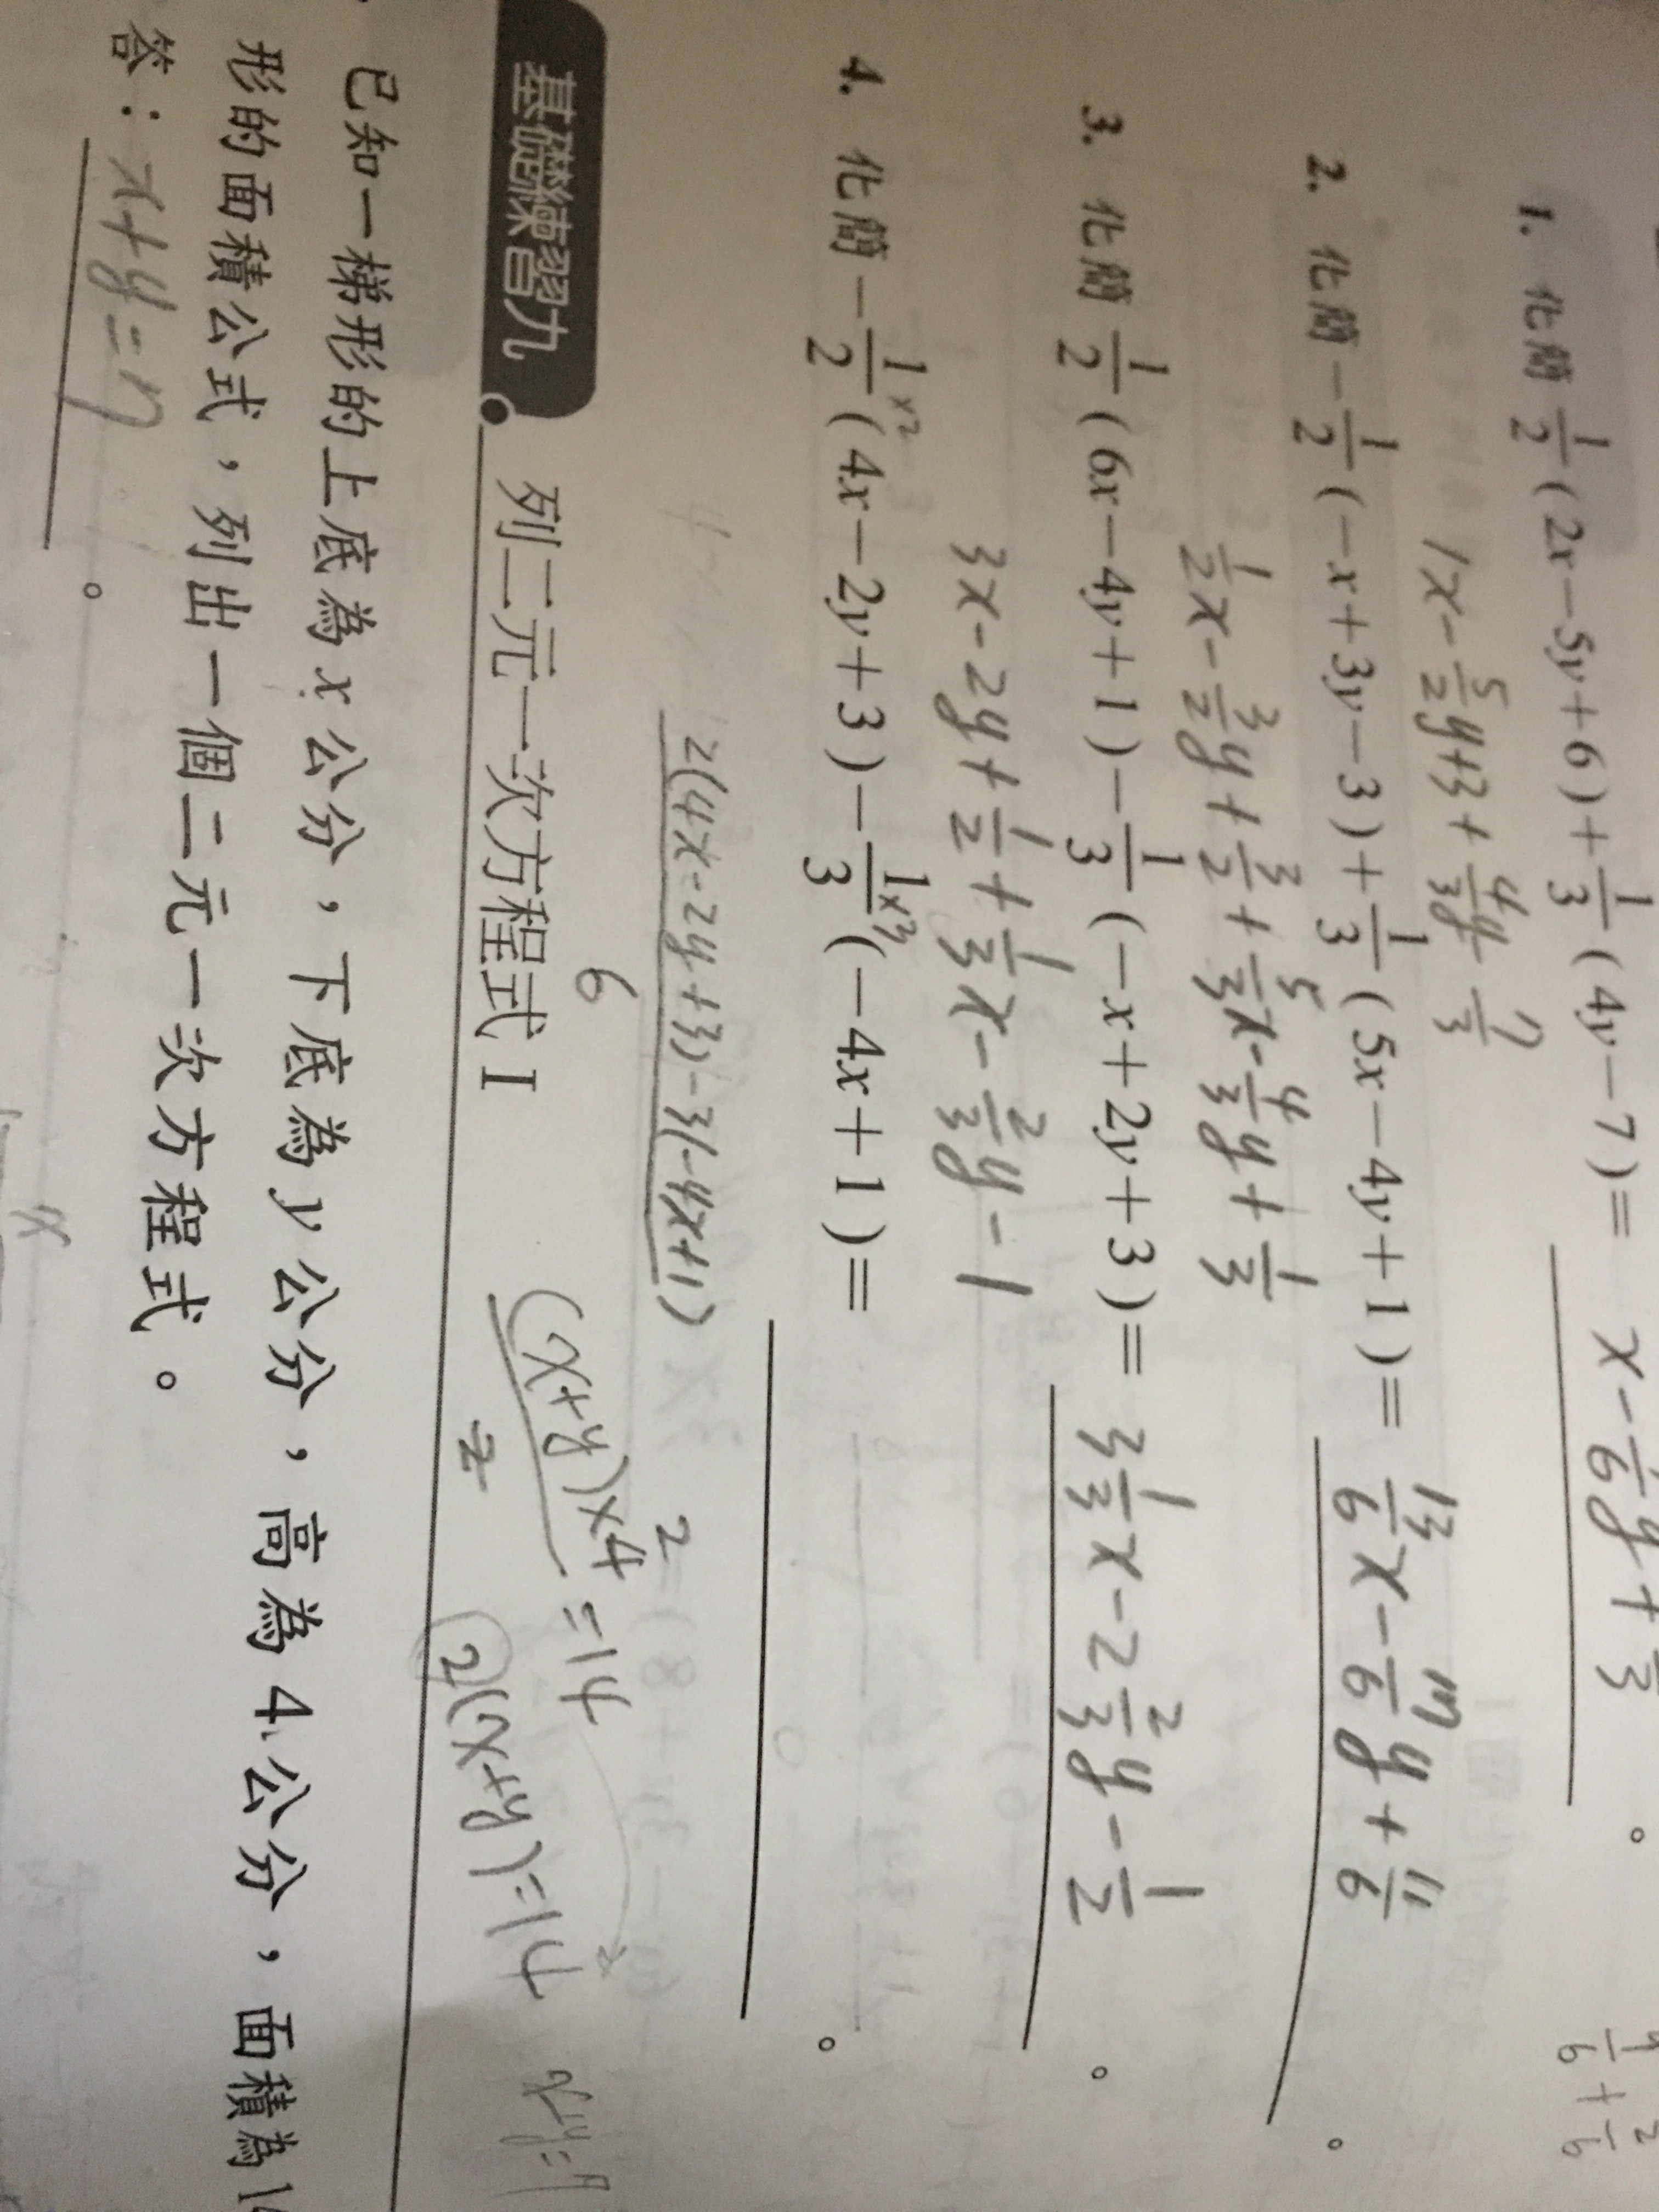 1. 化簡 1/2 (2x－5y＋6)＋1/3 (4y－7)＝ x - 1/6 y + /3 。
1x - 5/2 y + 3 + 4/3 y - 7/3
2. 化簡－1/2 (－x＋3y－3)＋1/3 (5x－4y＋1)＝ 13/6 x - 17/6 y + 11/6 。
1/2 x - 3/2 y + 3/2 + 5/3 x - 4/3 y + 1/3
3. 化簡 1/2 (6x－4y＋1)－1/3 (－x＋2y＋3)＝ 3 1/3 x - 2 2/3 y - 1/2 。
3x - 2y + 1/2 + 1/3 x - 2/3 y - 1
4. 化簡－1/2 ×2 (4x－2y＋3)－1/3 (－4x＋1)＝ 。
2(4x - 2y + 3) - 3(-4x + 1)
6
基礎練習九 列二元一次方程式 I
(x+y)×4 = 14
2
2(x+y) = 14
已知一梯形的上底為 x 公分，下底為 y 公分，高為 4 公分，面積為
形的面積公式，列出一個二元一次方程式。
答： x + y = 7 。